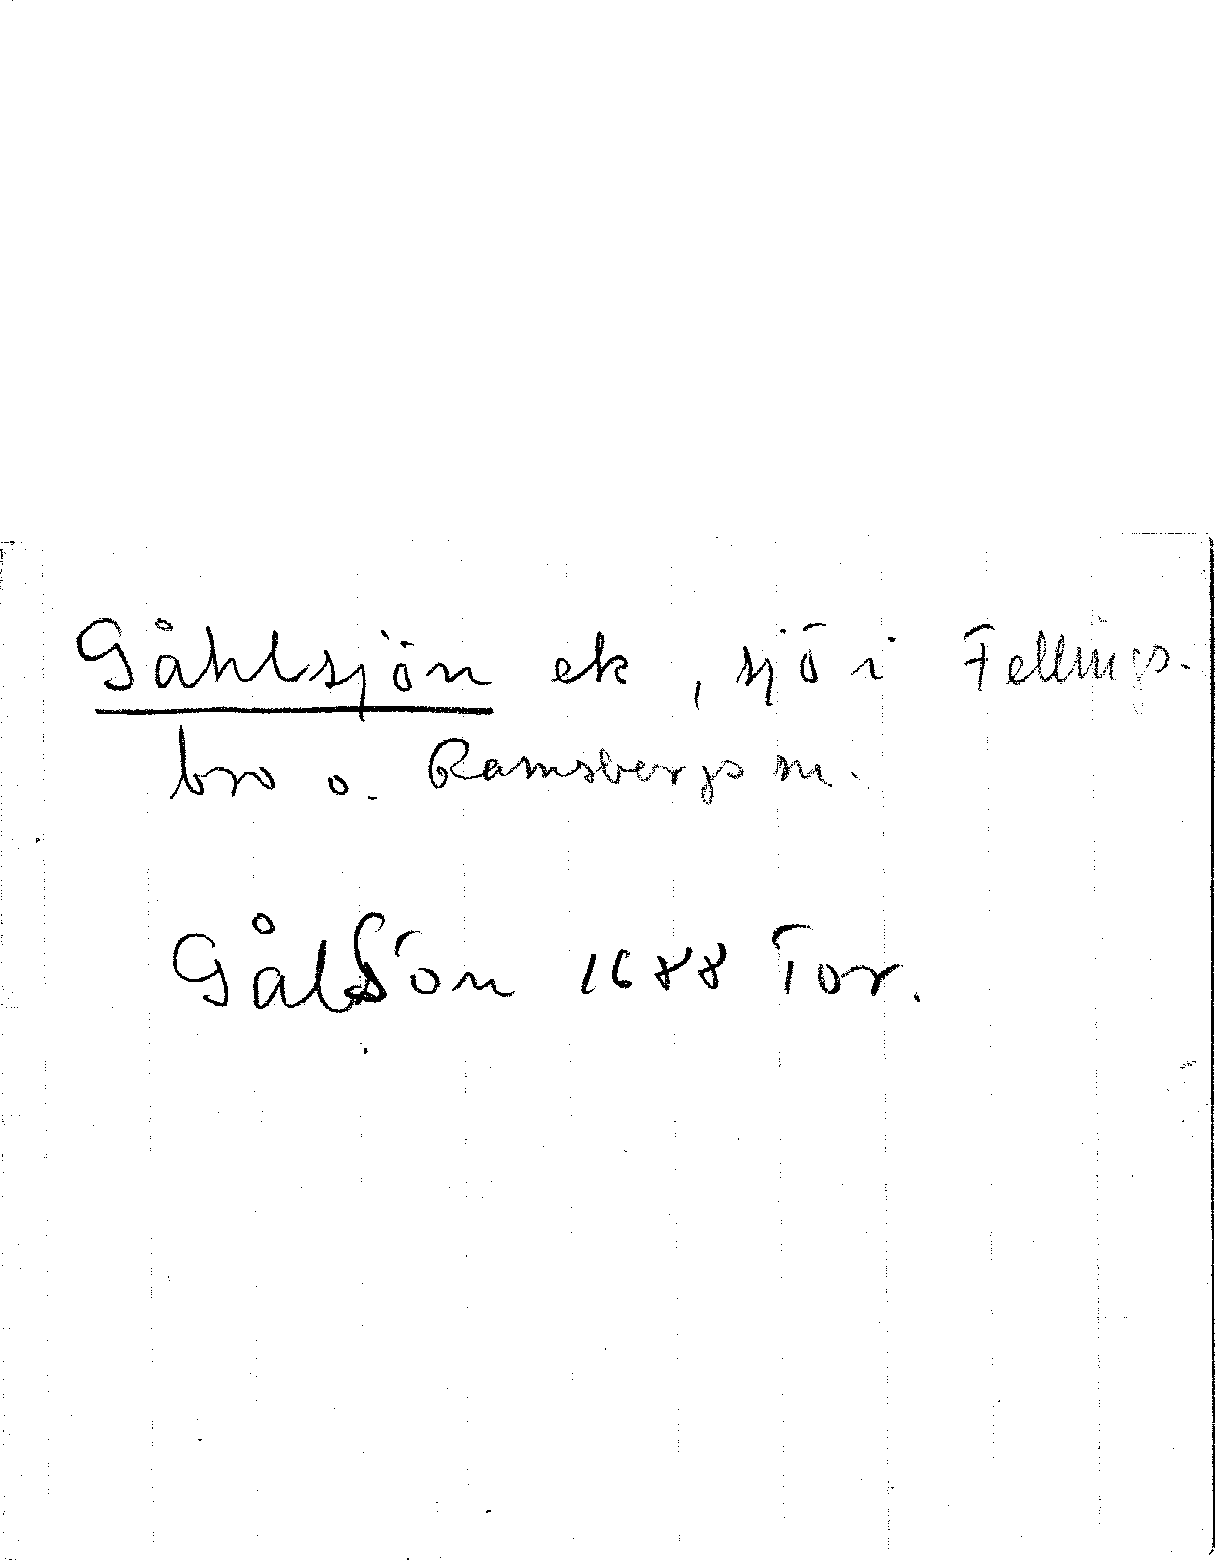 Gåhlsjön ek, sjö i Fellings-
bro o. Ramsbergs sn.
Gålsön 1688 Tor.